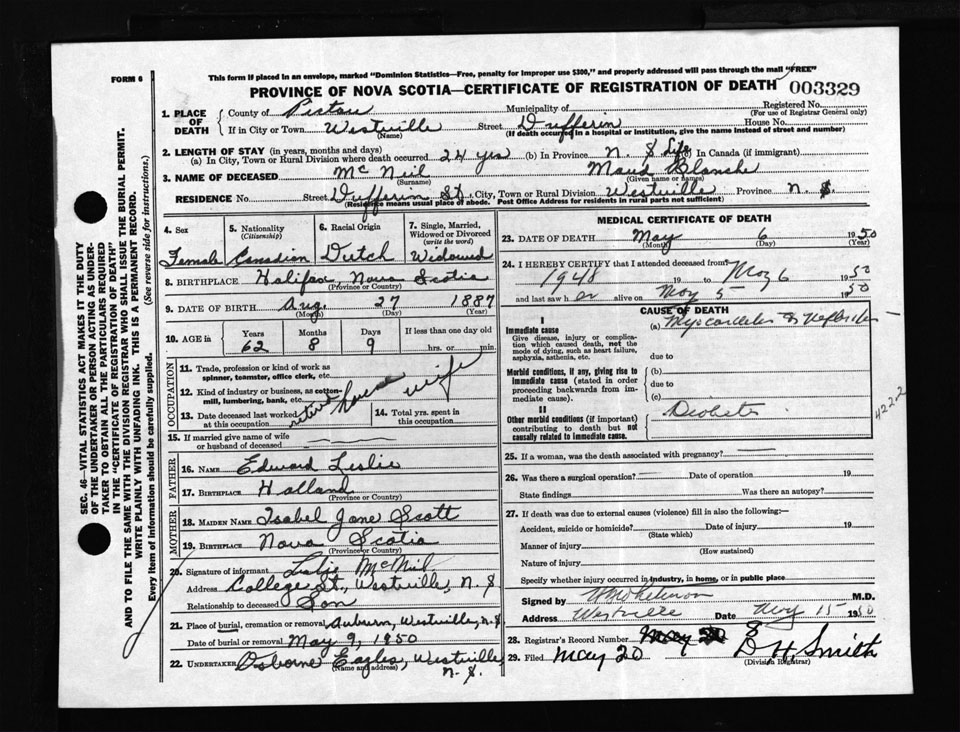 FORM 6
This form if placed in an envelope, marked "Dominion Statistics—Free, penalty for improper use $300," and properly addressed will pass through the mail "FREE"
PROVINCE OF NOVA SCOTIA—CERTIFICATE OF REGISTRATION OF DEATH 003329
1. PLACE OF DEATH
County of Pictou Municipality of Registered No.
(For use of Registrar General only)
If in City or Town Westville Street Dufferin House No.
(Name) (If death occurred in a hospital or institution, give the name instead of street and number)
2. LENGTH OF STAY (in years, months and days)
(a) In City, Town or Rural Division where death occurred 24 yrs (b) In Province N. S Life (c) In Canada (if immigrant)
3. NAME OF DECEASED Mc Neil Maud Blanche
(Surname) (Given name or names)
RESIDENCE No. Street Dufferin St., City, Town or Rural Division Westville Province N. S.
(Residence means usual place of abode. Post Office Address for residents in rural parts not sufficient)
4. Sex 5. Nationality (Citizenship) 6. Racial Origin 7. Single, Married, Widowed or Divorced (write the word)
Female Canadian Dutch Widowed
8. BIRTHPLACE Halifax Nova Scotia
(Province or Country)
9. DATE OF BIRTH Aug. 27 1887
(Month) (Day) (Year)
10. AGE in Years Months Days If less than one day old
62 8 9 hrs. or min.
OCCUPATION
11. Trade, profession or kind of work as spinner, teamster, office clerk, etc.
12. Kind of industry or business, as cotton-mill, lumbering, bank, etc.
house wife
13. Date deceased last worked at this occupation
14. Total yrs. spent in this occupation
15. If married give name of wife or husband of deceased
FATHER
16. NAME Edward Leslie
17. BIRTHPLACE Holland
(Province or Country)
MOTHER
18. MAIDEN NAME Isabel Jane Scott
19. BIRTHPLACE Nova Scotia
(Province or Country)
20. Signature of informant Leslie McNeil
Address College St, Westville, N. S
Relationship to deceased Son
21. Place of burial, cremation or removal Auburn, Westville, N. S
Date of burial or removal May 9, 1950
22. UNDERTAKER Osborne Eagles, Westville
(Name and address) N. S.
MEDICAL CERTIFICATE OF DEATH
23. DATE OF DEATH May 6 1950
(Month) (Day) (Year)
24. I HEREBY CERTIFY that I attended deceased from
1948 19 to May 6 1950
and last saw h er alive on May 5 1950
CAUSE OF DEATH
I
Immediate cause
Give disease, injury or complication which caused death, not the mode of dying, such as heart failure, asphyxia, asthenia, etc.
(a) Myocarditis & Nephritis
due to
Morbid conditions, if any, giving rise to immediate cause (stated in order proceeding backwards from immediate cause).
(b)
due to
(c)
II
Other morbid conditions (if important) contributing to death but not causally related to immediate cause.
Diabetes
4222
25. If a woman, was the death associated with pregnancy?
26. Was there a surgical operation? Date of operation 19
State findings Was there an autopsy?
27. If death was due to external causes (violence) fill in also the following:—
Accident, suicide or homicide? Date of injury 19
(State which)
Manner of injury
(How sustained)
Nature of injury
Specify whether injury occurred in industry, in home, or in public place
Signed by M.D.
Address Westville Date May 15 1950
28. Registrar's Record Number 8
29. Filed May 20 D H. Smith
(Division Registrar)
SEC. 46—VITAL STATISTICS ACT MAKES IT THE DUTY
OF THE UNDERTAKER OR PERSON ACTING AS UNDER-
TAKER TO OBTAIN ALL THE PARTICULARS REQUIRED
IN THE "CERTIFICATE OF REGISTRATION OF DEATH"
AND TO FILE THE SAME WITH THE DIVISION REGISTRAR WHO SHALL ISSUE THE BURIAL PERMIT.
WRITE PLAINLY WITH UNFADING INK. THIS IS A PERMANENT RECORD.
Every item of information should be carefully supplied. (See reverse side for instructions.)